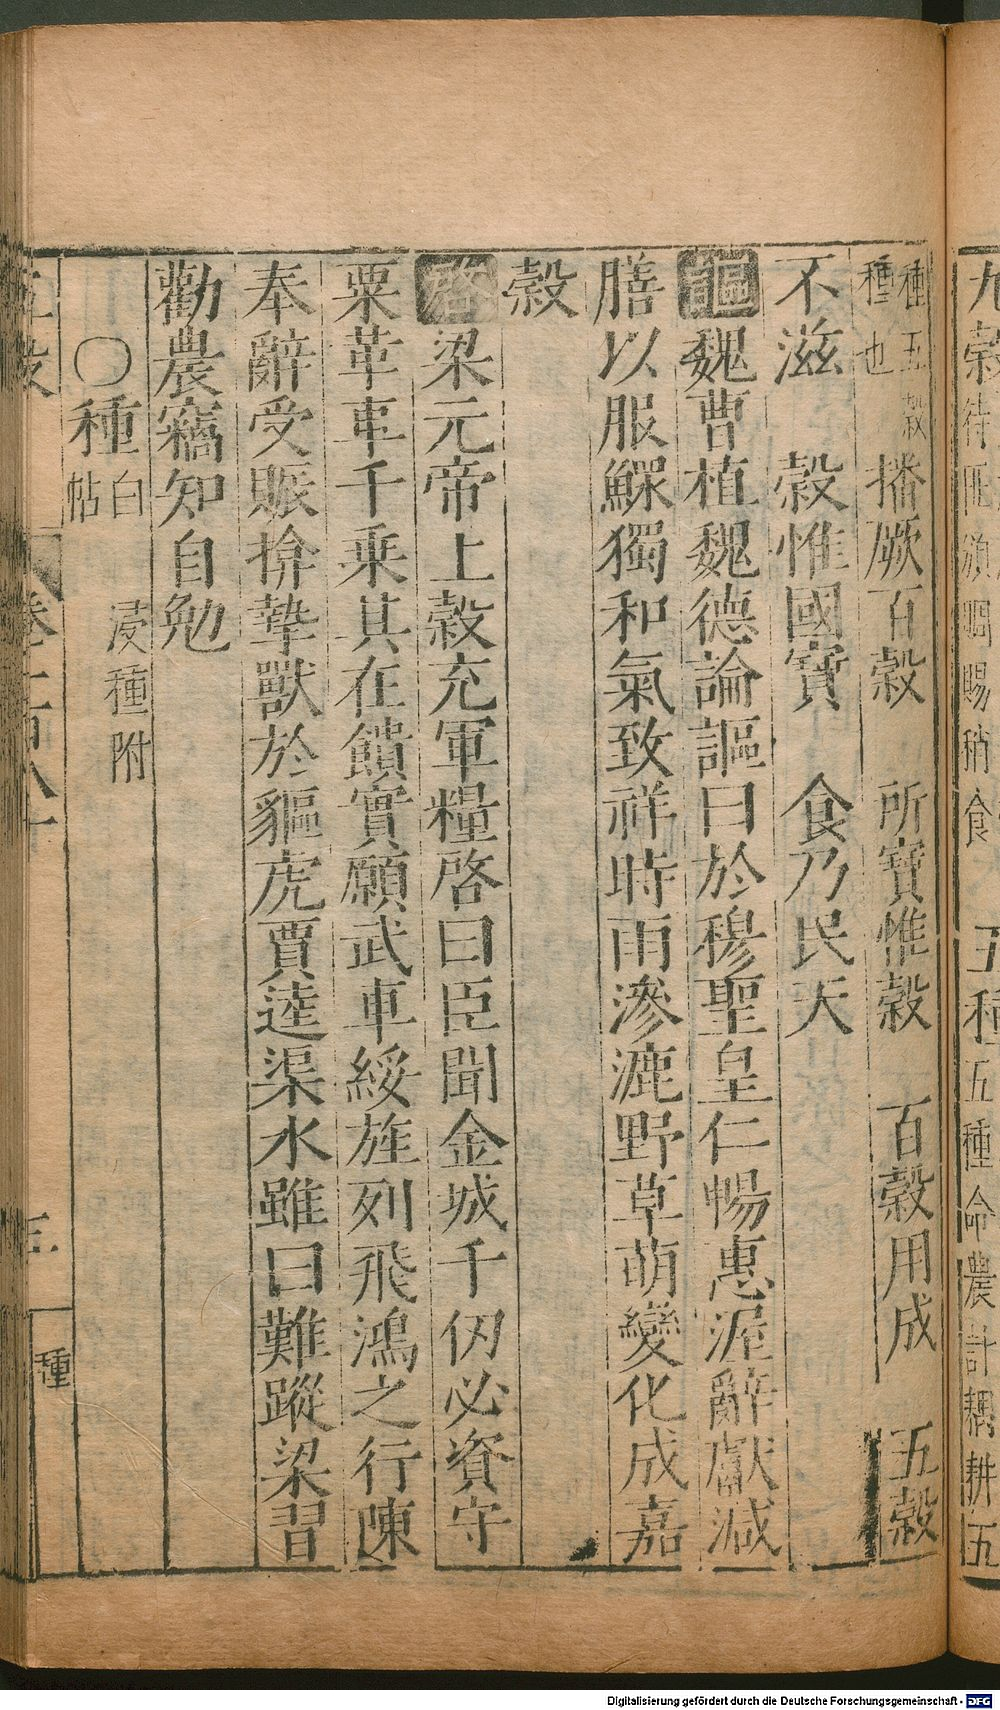 九穀待匪頒賙賜稍食 五種五種命農計耦耕五
種五穀種也 播厥百穀 所寶惟穀 百穀用成 五穀
不滋 穀惟國寶 食乃民天
謳魏曹植魏德論謳曰於穆聖皇仁暢惠渥辭獻減
膳以服鰥獨和氣致祥時雨滲漉野草萌變化成嘉
穀
啓梁元帝上穀充軍糧啓曰臣聞金城千仞必資守
粟革車千乗其在饋實願武車綏旌列飛鴻之行陳
奉辭受賑揜摯獸於貙虎賈逵渠水雖曰難蹤梁習
勸農竊知自勉
○種白帖 浸種附
卷 三 種
Digitalisierung gefördert durch die Deutsche Forschungsgemeinschaft - DFG